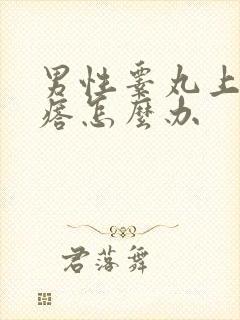 男性睾丸上
痞怎麼办
君落舞